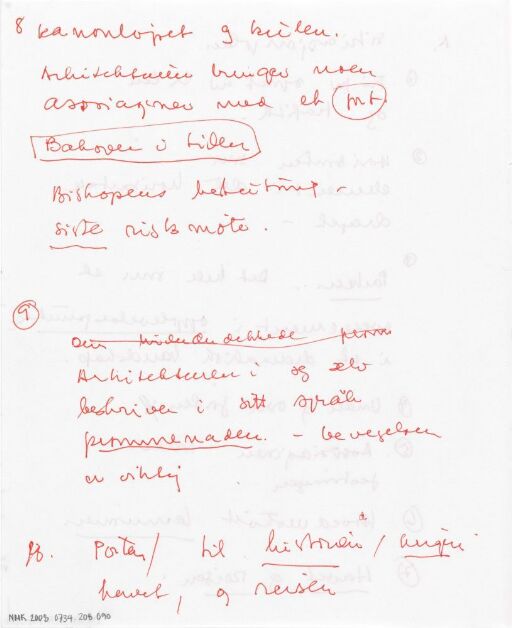 8 kanonløpet og kulen.
Arkitekturen bringer noen
assosiasjoner med et fort
Bakover i tiden
Bishopens beskrivning -
siste riksmøte.
9
Arkitekturen i seg selv
beskriver i sitt språk
promenaden. - bevegelsen
er viktig
10. Porten / til historien /
havet, og reisen
NMK 2005 0734.208.090